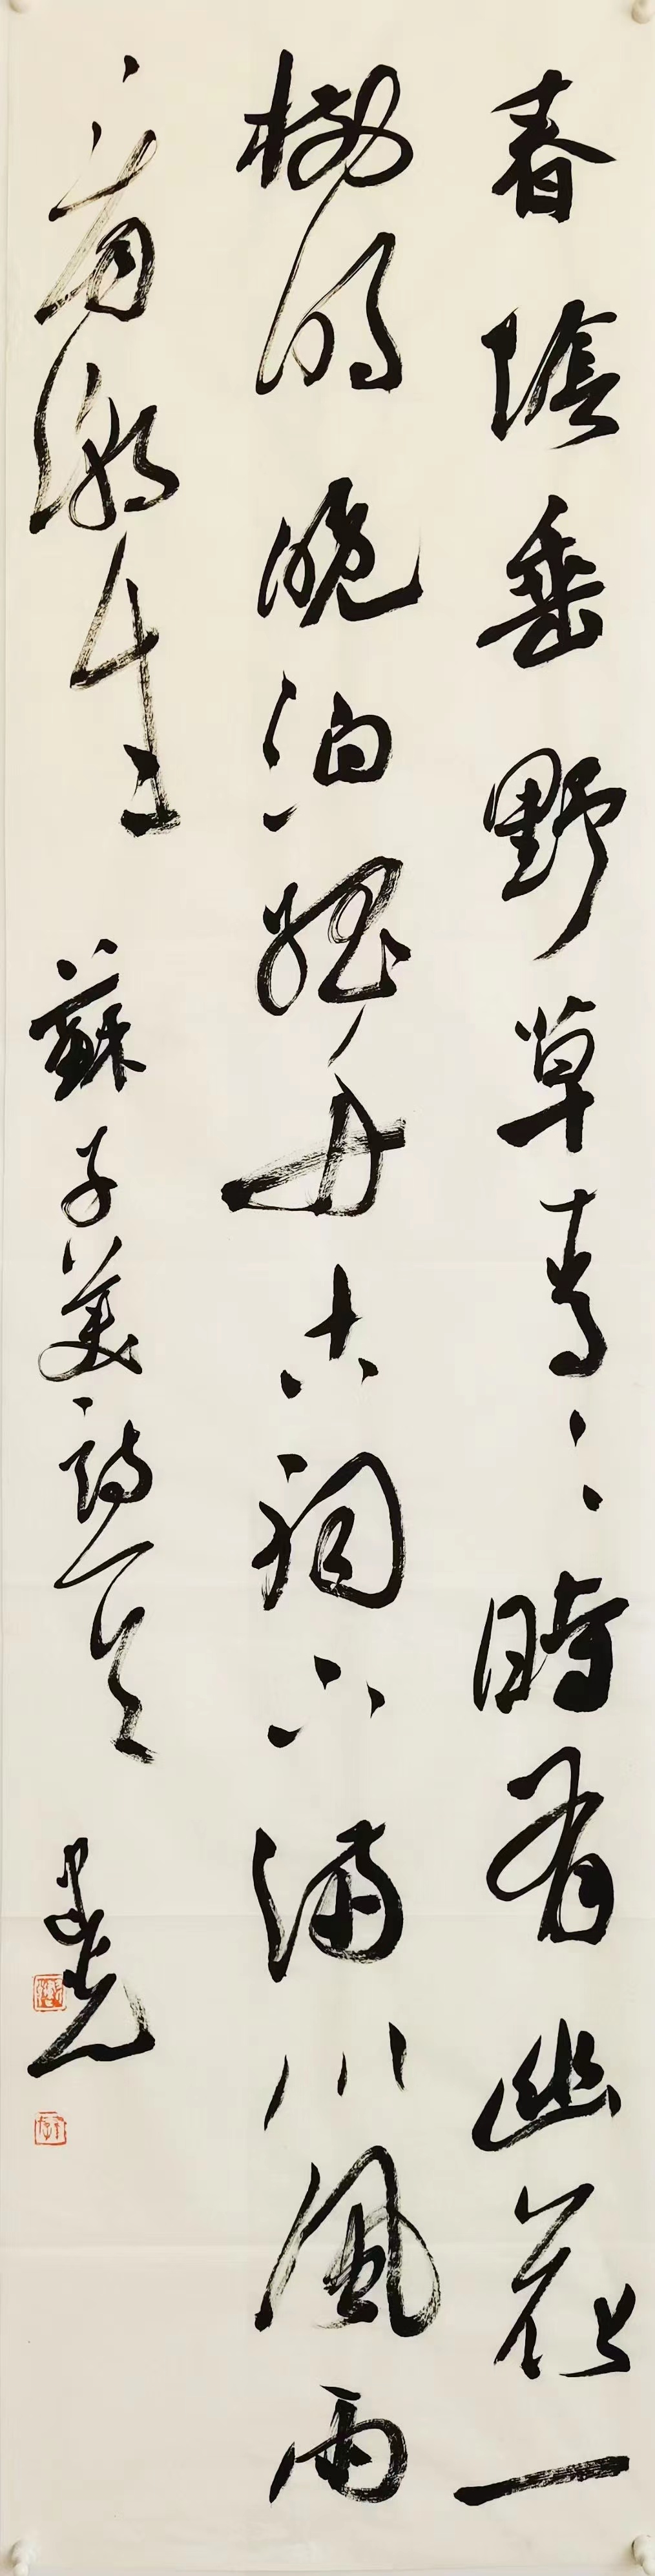 春陰垂野草青〻時有幽花一
樹明晚泊孤舟古祠下滿川風雨
看潮生 蘇子美詩一首